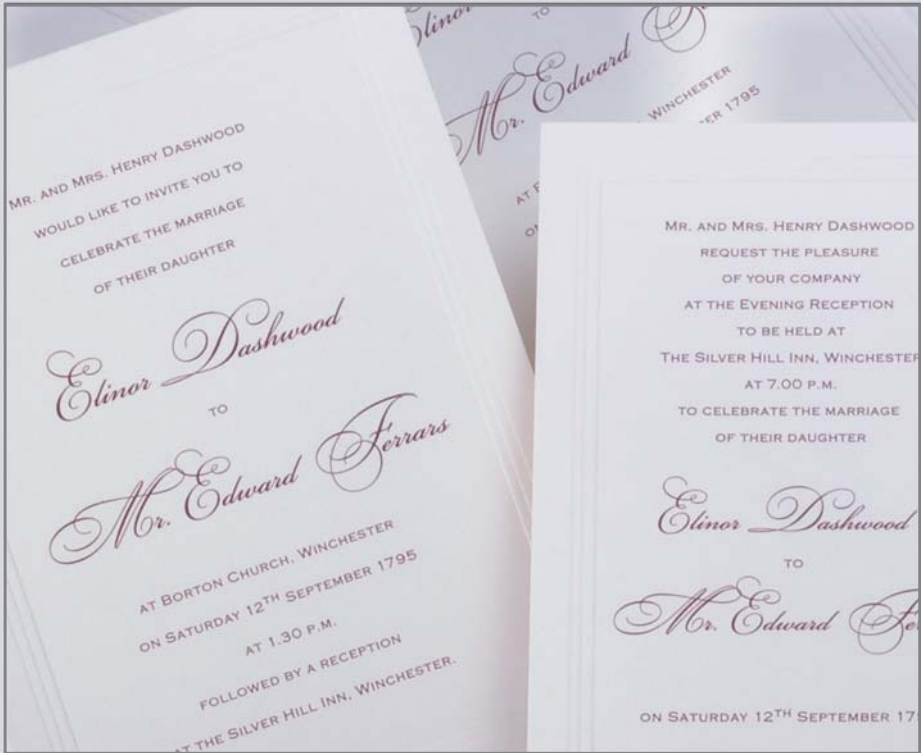 MR. AND MRS. HENRY DASHWOOD
WOULD LIKE TO INVITE YOU TO
CELEBRATE THE MARRIAGE
OF THEIR DAUGHTER
Elinor Dashwood
TO
Mr. Edward Ferrars
AT BORTON CHURCH, WINCHESTER
ON SATURDAY 12TH SEPTEMBER 1795
AT 1.30 P.M.
FOLLOWED BY A RECEPTION
AT THE SILVER HILL INN, WINCHESTER.
Elinor
TO
Mr. Edward
WINCHESTER
1795
MR. AND MRS. HENRY DASHWOOD
REQUEST THE PLEASURE
OF YOUR COMPANY
AT THE EVENING RECEPTION
TO BE HELD AT
THE SILVER HILL INN, WINCHESTER
AT 7.00 P.M.
TO CELEBRATE THE MARRIAGE
OF THEIR DAUGHTER
Elinor Dashwood
TO
Mr. Edward Fer
ON SATURDAY 12TH SEPTEMBER 17